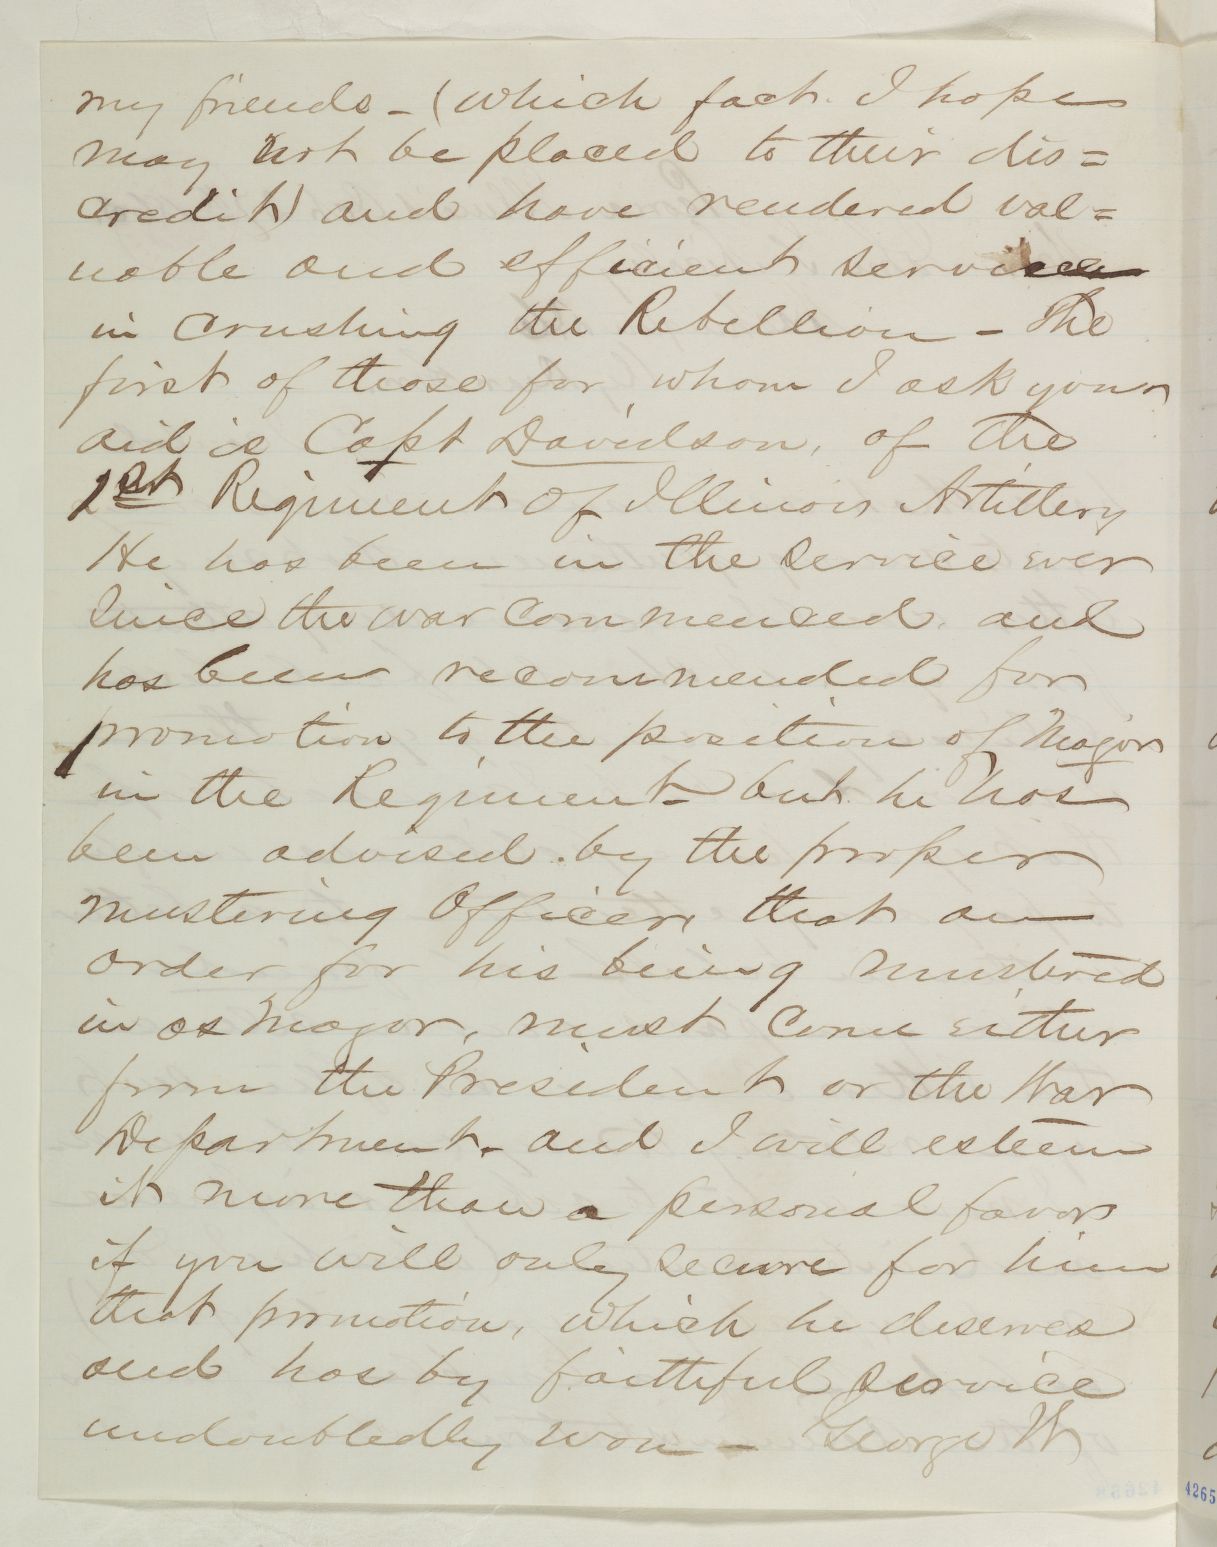 my friends - (which fact. I hope
may not be placed to their dis=
credit) and have rendered val=
uable and efficient service
in crushing the Rebellion - The
first of those for whom I ask your
aid is Capt Davidson, of the
1st Regiment of Illinois Artillery
He has been in the service ever
since the war commenced. and
has been recommended for
promotion to the position of Major
in the Regiment - but he has
been advised by the proper
mustering Officer, that an
order for his being mustered
in as Major, must come either
from the President or the War
Department - and I will esteem
it more than a personal favor
if you will only secure for him
that promotion, which he deserves
and has by faithful service
undoubtedly won - George W
4265